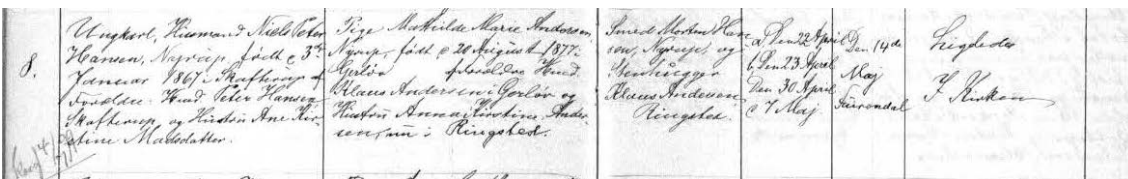 8.
Ungkarl, Husmand Niels Peter
Hansen, Nyrup, født d. 3die
Januar 1867 i Skafterup af
Forældre: Husmd Peter Hansen
Skafterup og Hustru Ane Kir-
stine Madsdatter.
Pige Mathilde Marie Andersen,
Nyrup, født d. 20 August 1877
Gjerløv forældre Husmd
Klaus Andersen i Gørlev og
Hustru Anna Kirstine Ander-
sen, nu i Ringsted.
Smed Morten Han-
sen, Nyrup, og
Stenhugger
Klaus Andersen
Ringsted.
a. Den 22 April
b. Den 23 April
Den 30 April
c. 7 Maj.
Den 14de
Maj
Ligeledes
I Kirken